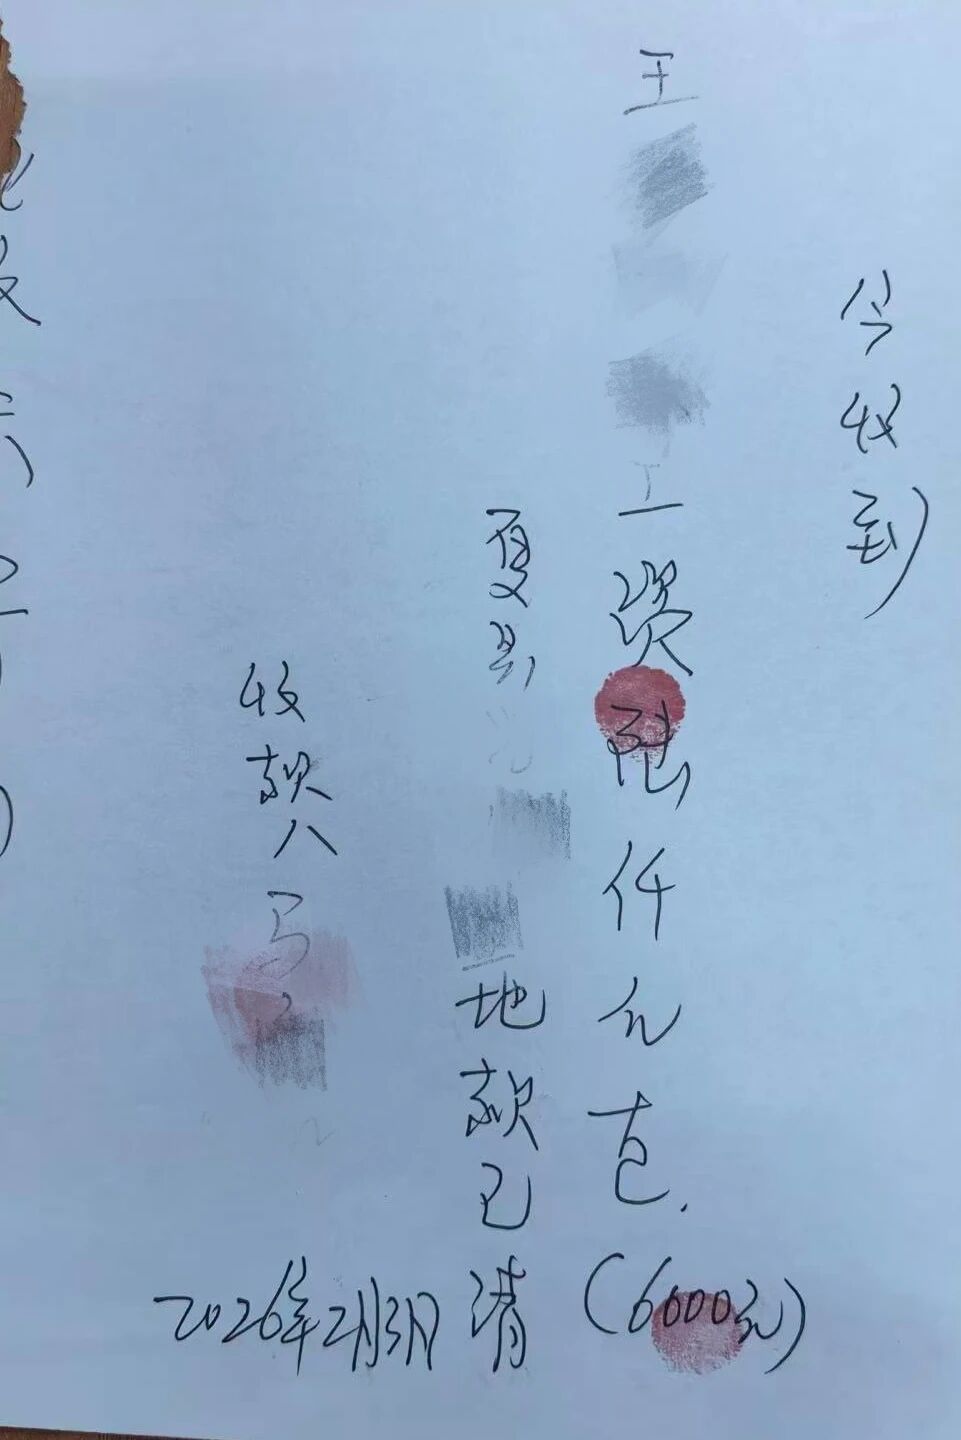 今收到
王 工资陆仟元吉.
(6000元)
夏县 地款已清
收款人 马
2026年2月3日